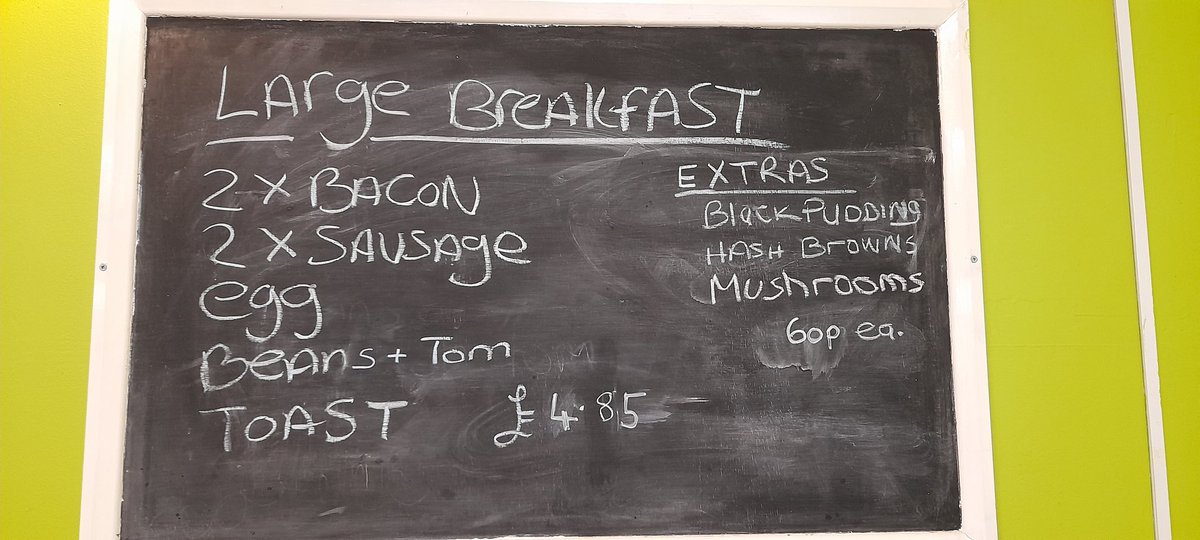 LArge BreAKfAST
2 X BACON
2 X SAUSAge
egg
BeAns + Tom
TOAST £4.85
EXTRAS
Black PUDDING
HASH BrOWNS
Mushrooms
60p ea.